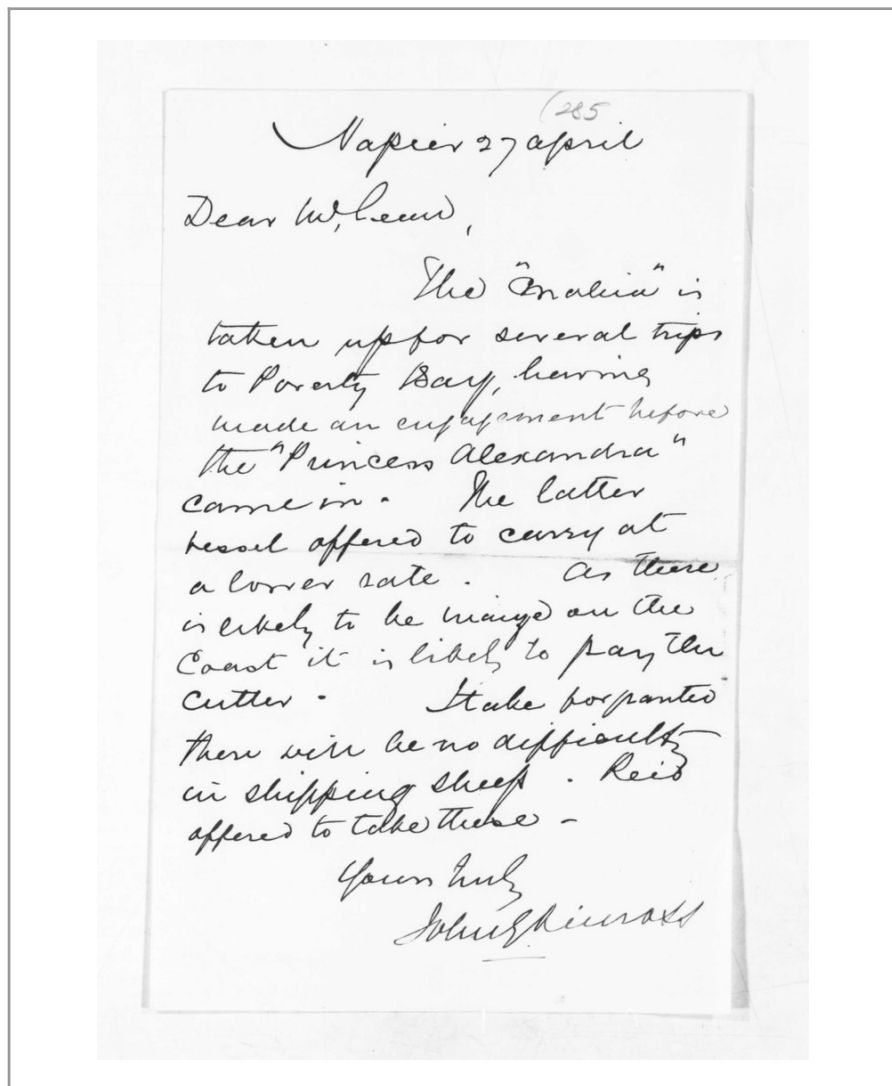 (285
Napier 27 april
Dear McLean,
The " " is
taken up for several trips
to Poverty Bay, having
made an engagement before
the "Princess Alexandra"
came in. The latter
vessel offered to carry at
a lower rate. As there
is likely to be maize on the
Coast it is likely to pay the
cutter. I take for granted
there will be no difficulty
in shipping sheep. Reid
offered to take these -
Yours truly
John G Kinross